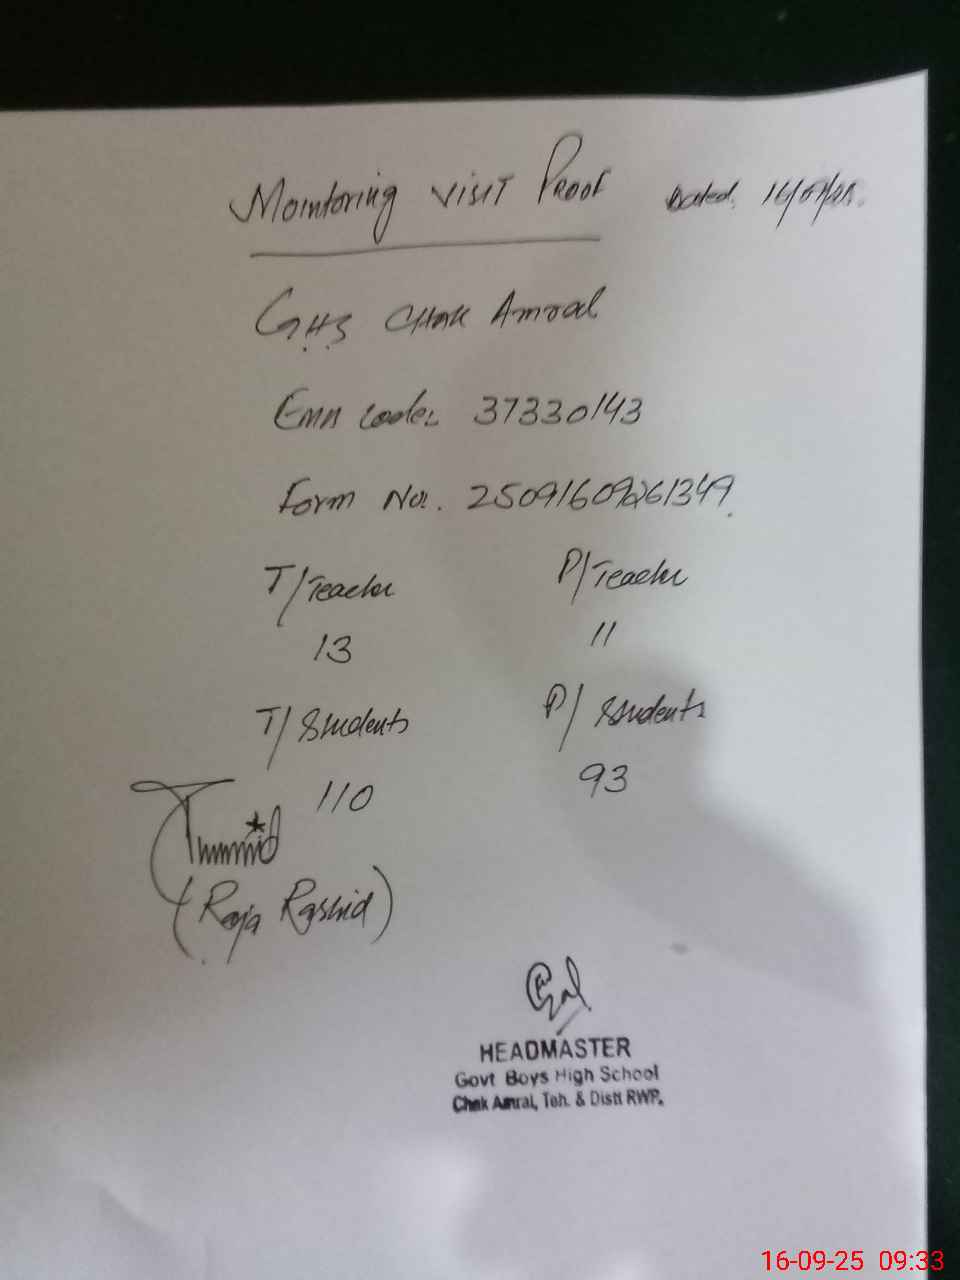 Monitoring Visit Proof Dated. 16/9/25.
GHS Chak Amral
EMIS Code: 37330143
Form No. 25091609261349
T/Teacher P/Teacher
13 11
T/Students P/Students
110 93
(Raja Rashid)
HEADMASTER
Govt Boys High School
Chak Amral, Teh. & Distt RWP.
16-09-25 09:33